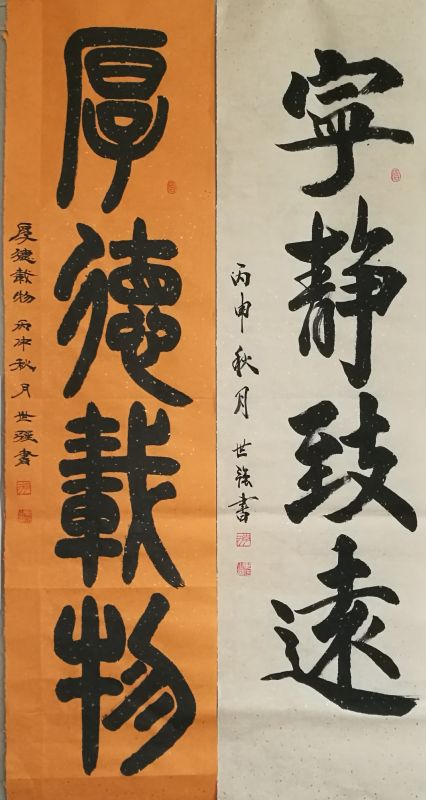 寧靜致遠
丙申秋月
世強書
厚德載物
厚德載物 丙申秋月 世強書